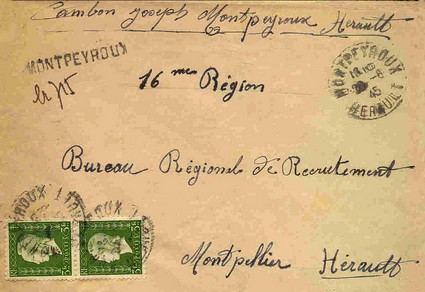 Cambon Joseph Montpeyroux Hérault
MONTPEYROUX
16me Région
MONTPEYROUX
-8
45
HERAULT
Bureau Régional de Recrutement
Montpellier Hérault